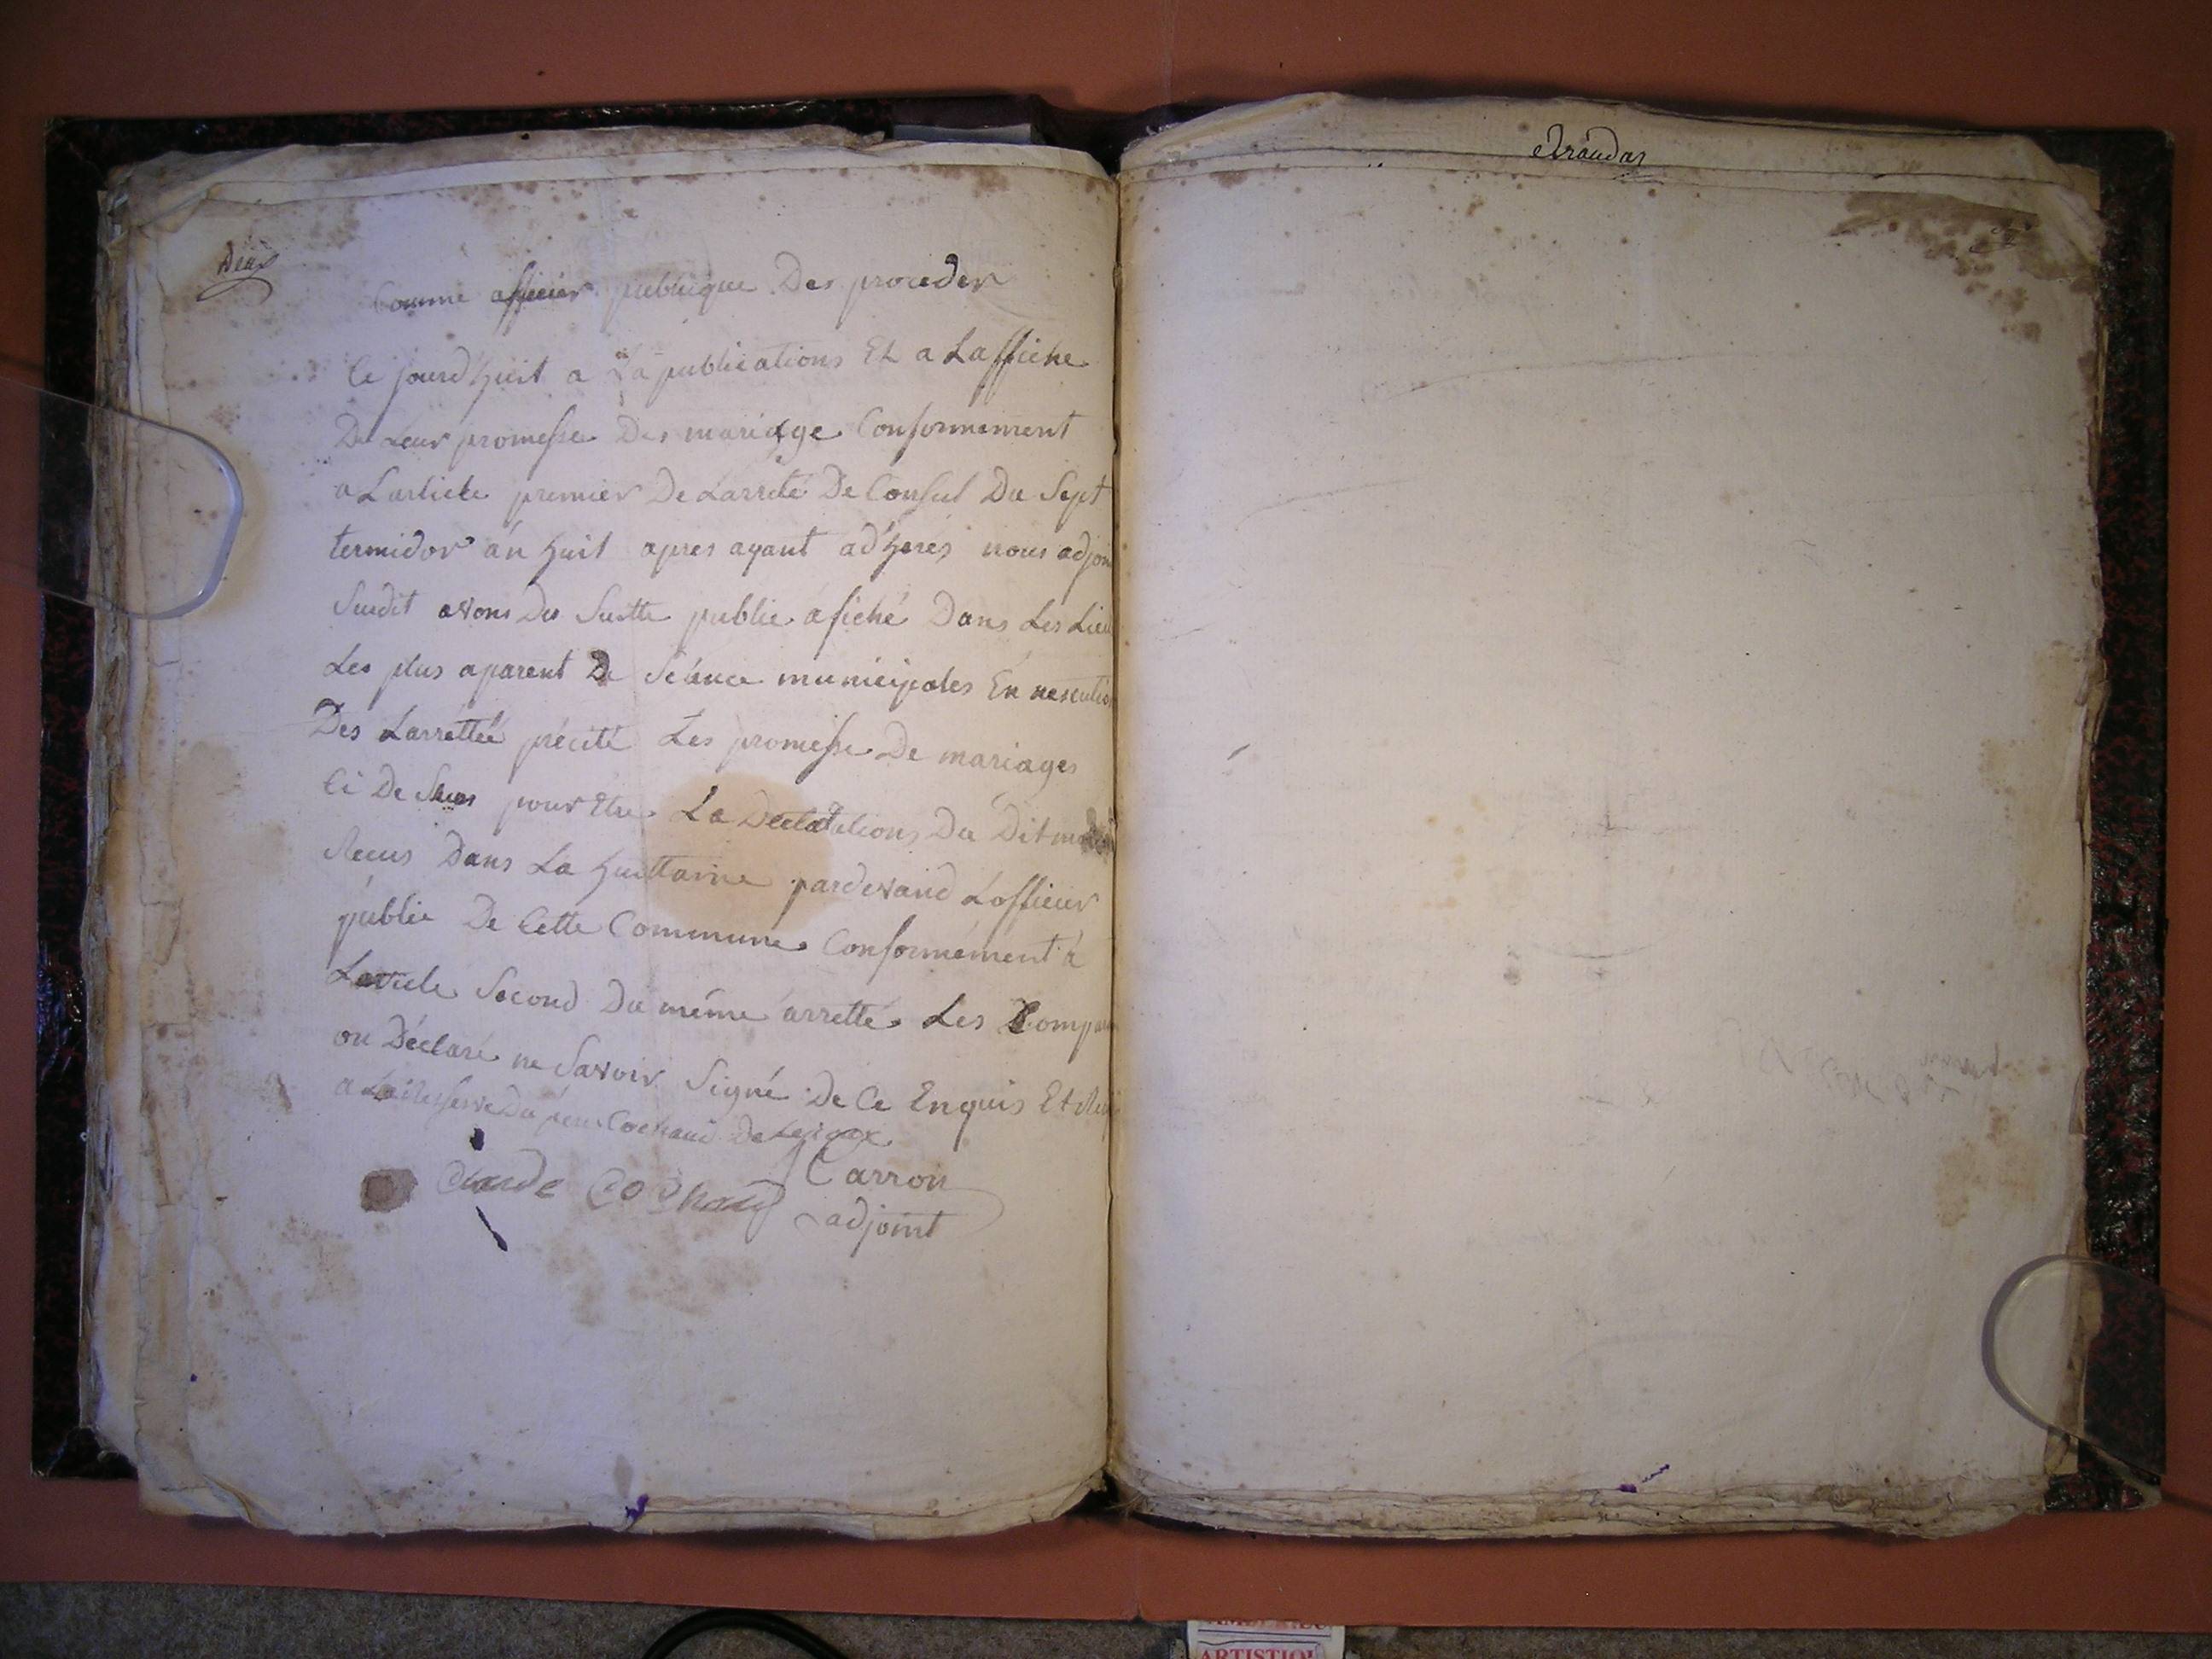 Deux
Comme officier publique Des proceder
Ce jourd'huit a La publications Et a Laffiche
De Leur promesse Des mariage Conformement
a Larticle premier De Larrete De Consul Du Sept
termidor an huit apres ayant adherés nous adjoin
Susdit avons Des Suitte publie afiché Dans Les Lieu
Les plus aparent De Séance municipales En
Des Larrettée précité Les promesse De mariages
Ci De Sus pour Etre La Declarations Du Dit
Recus Dans La huittaine pardevand Lofficier
public De Cette Commune Conformément à
Larticle Second Du même arretté Les Compa
on Déclaré ne Savoir Signé De Ce Enquis Et
a Du Cochaud
Claude Cochaud Carron
adjoint
ARTISTIQU